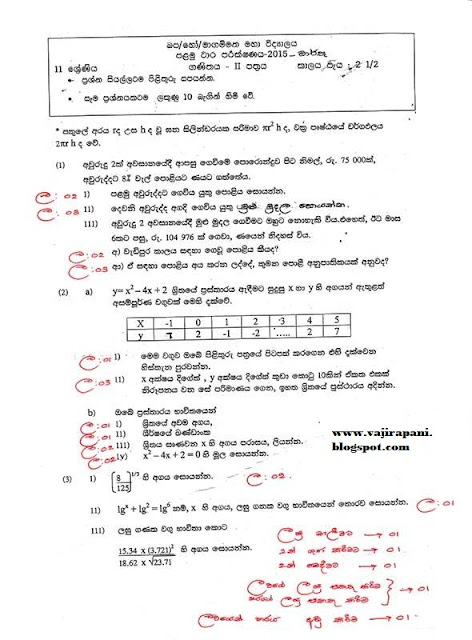 බප/හෝ/මාගම්මන මහා විද්‍යාලය
පළමු වාර පරීක්ෂණය-2015
11 ශ්‍රේණිය ගණිතය - II පත්‍රය කාලය පැය : 2 1/2
• ප්‍රශ්න සියල්ලටම පිළිතුරු සපයන්න.
• සෑම ප්‍රශ්නයකටම ලකුණු 10 බැගින් හිමි වේ.
* පතුලේ අරය rද උස h ද වූ ඝන සිලින්ඩරයක පරිමාව πr² h ද, වක්‍ර පෘෂ්ඨයේ වර්ගඵලය
2πr h ද වේ.
(1) අවුරුදු 2ක් අවසානයේදී ආපසු ගෙවීමේ පොරොන්දුව පිට නිමල්, රු. 75 000ක්,
අවුරුද්දට 8% වැල් පොළියට ණයට ගත්තේය.
ල: 02 1) පළමු අවුරුද්දට ගෙවිය යුතු පොළිය සොයන්න.
ල: 03 11) දෙවනි අවුරුද්ද අගදි ගෙවිය යුතු මුළු මුදල සොයන්න.
111) අවුරුදු 2 අවසානයේදී මුළු මුදල ගෙවීමට ඔහුට නොහැකි විය.එහෙත්, ඊට මාස
6කට පසු, රු. 104 976 ක් ගෙවා, ණයෙන් නිදහස් විය.
ල: 02 අ) වැඩිපුර කාලය සඳහා ගෙවූ පොළිය කීයද?
ල: 03 ආ) ඒ සඳහා පොළිය අය කරන ලද්දේ, කුමන පොළී අනුපාතිකයක් අනුවද?
(2) a) y= x² – 4x + 2 ශ්‍රිතයේ ප්‍රස්තාරය ඇඳීමට සුදුසු x හා y හි අගයන් ඇතුළත්
අසම්පූර්ණ වගුවක් මෙහි දක්වේ.
X -1 0 1 2 3 4 5
y 7 2 -1 -2 ..... 2 7
ල: 01 1) මෙම වගුව ඔබේ පිළිතුරු පත්‍රයේ පිටපත් කරගෙන එහි දක්වෙන
හිස්තැන පුරවන්න.
ල: 03 11) x අක්ෂය දිගේත් , y අක්ෂය දිගේත් කුඩා කොටු 10කින් ඒකක එකක්
නිරූපනය වන සේ පරිමාණය ගෙන, ඉහත ශ්‍රිතයේ ප්‍රස්ථාරය අඳින්න.
b) ඔබේ ප්‍රස්තාරය භාවිතයෙන්
ල: 01 1) ශ්‍රිතයේ අවම අගය,
ල: 01 11) ශීර්ෂයේ ඛණ්ඩාංක
ල: 02 111) ශ්‍රිතය සෘණවන x හි අගය පරාසය, ලියන්න.
ල: 02 1y) x² – 4x + 2 = 0 හි මූල සොයන්න.
www.vajirapani.
blogspot.com
(3) 1) [8/125]^1/3 හි අගය සොයන්න. ල: 02
11) lgˣ + lg² = lg⁶ නම්, x හි අගය, ලඝු ගනක වගු භාවිතයෙන් තොරව සොයන්න. ල: 01
111) ලඝු ගණක වගු භාවිතා කොට
15.34 x (3.721)² හි අගය සොයන්න.
18.62 x √23.71
→ 01
→ 01
→ 01
→ 01
→ 01